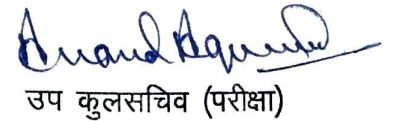 Anand Agarwal
उप कुलसचिव (परीक्षा)